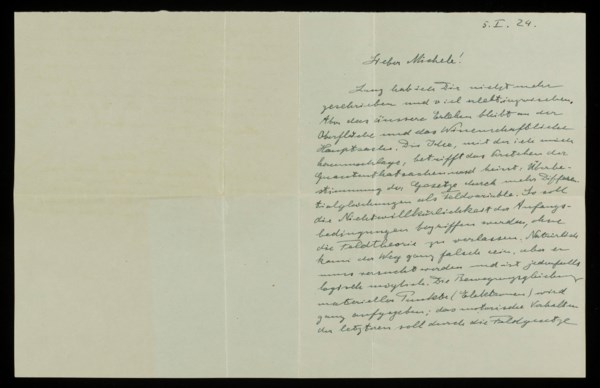 5. I. 24.
Lieber Michele!
Lang hab ich Dir nicht mehr
geschrieben und viel ist inzwischen.
Aber das äussere Erleben bleibt an der
Oberfläche und das Wissenschaftliche
Hauptsache. Die Idee, mit der ich mich
herumschlage, betrifft das Verstehen der
Quantenthatsachen und heisst: Überbe-
stimmung der Gesetze durch mehr Differen-
tialgleichungen als Feldvariable. So soll
die Nichtwillkürlichkeit der Anfangs-
bedingungen begriffen werden, ohne
die Feldtheorie zu verlassen. Natürlich
kann der Weg ganz falsch sein, aber er
muss versucht werden und ist jedenfalls
logisch möglich. Die Bewegungsgleichung
materieller Punkte (Elektronen) wird
ganz aufgegeben; das motorische Verhalten
der letzteren soll durch die Feldgesetze